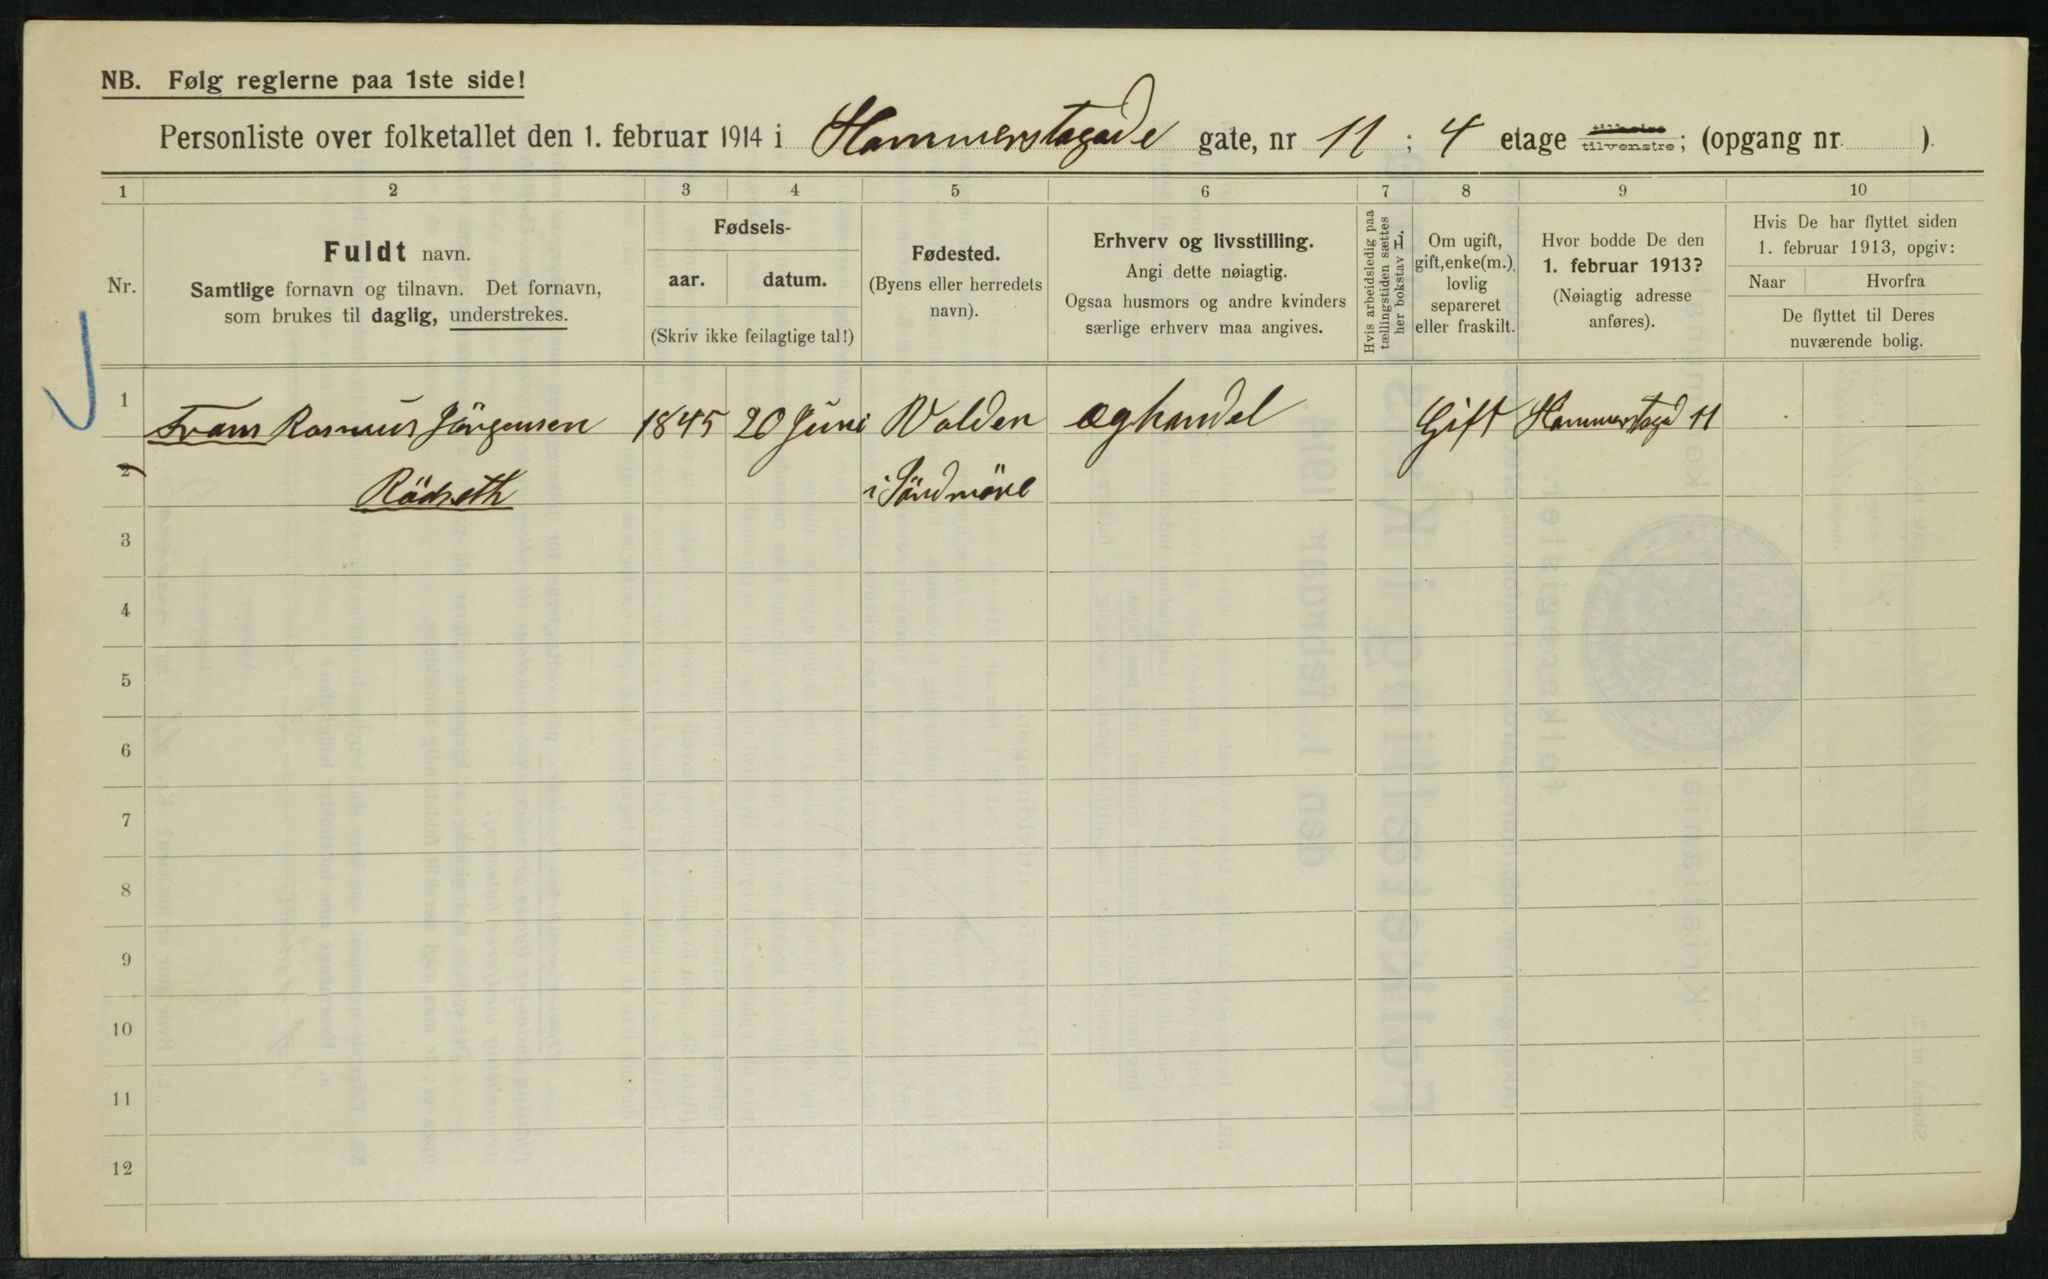 NB. Følg reglerne paa 1ste side!
Personliste over folketallet den 1. februar 1914 i Hammerstagade gate, nr 11 ; 4 etage tilhøire tilvenstre; (opgang nr. ).
1 2 3 4 5 6 7 8 9 10
Nr.
Fuldt navn.
Samtlige fornavn og tilnavn. Det fornavn,
som brukes til daglig, understrekes.
Fødsels-
aar. datum.
(Skriv ikke feilagtige tal!)
Fødested.
(Byens eller herredets
navn).
Erhverv og livsstilling.
Angi dette nøiagtig.
Ogsaa husmors og andre kvinders
særlige erhverv maa angives.
Hvis arbeidsledig paa
tællingstiden sættes
her bokstav L.
Om ugift,
gift, enke(m.),
lovlig
separeret
eller fraskilt.
Hvor bodde De den
1. februar 1913?
(Nøiagtig adresse
anføres).
Hvis De har flyttet siden
1. februar 1913, opgiv:
Naar Hvorfra
De flyttet til Deres
nuværende bolig.
1 Frans Rasmus Jörgensen 1845 20 Juni Volden Æghandel Gift Hammerstagd 11
2 Rödseth i Söndmöre
3
4
5
6
7
8
9
10
11
12